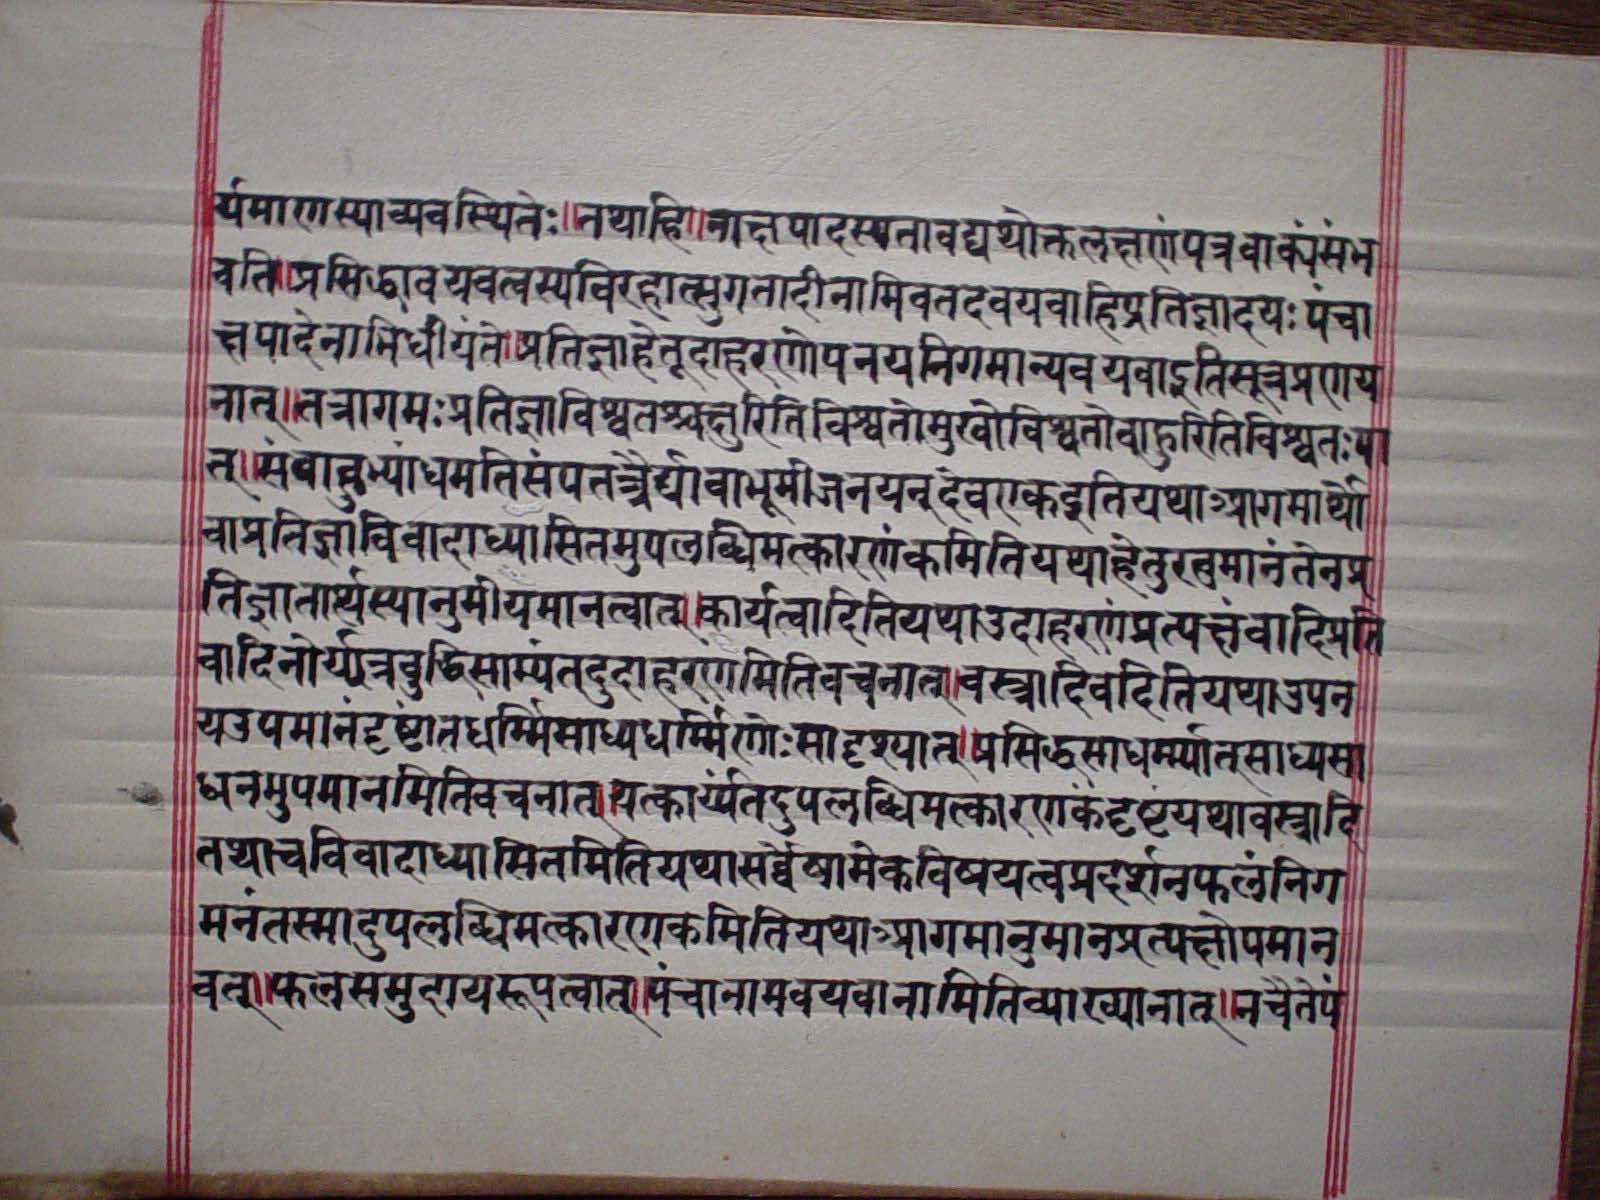 र्यमाणस्याव्यवस्थितेः॥तथाहि॥नाक्षपादस्यतावद्यथोक्तलक्षणंपत्रवाक्यंसंभ
वति।प्रसिद्धावयवत्वस्यविरहात्सुगतादीनामिवतदवयवाहिप्रतिज्ञादयःपंचा
क्षपादेनाभिधीयंते।प्रतिज्ञाहेतूदाहरणोपनयनिगमान्यवयवाइतिसूत्रप्रणय
नात्॥तत्रागमःप्रतिज्ञाविश्वतश्चक्षुरितिविश्वतोमुखोविश्वतोबाहुरितिविश्वतःपा
त्॥संबाहुभ्यांधमतिसंपतत्रैर्द्यावाभूमीजनयन्देवएकइतियथाआगमार्थो
वाप्रतिज्ञाविवादाध्यासितमुपलब्धिमत्कारणंकमितियथाहेतुरनुमानंतेनप्र
तिज्ञातार्थस्यानुमीयमानत्वात्।कार्यत्वादितियथाउदाहरणंप्रत्यक्षंवादिप्रति
वादिनोर्य्यत्रबुद्धिसाम्यंतदुदाहरणमितिवचनात्।वस्त्रादिवदितियथाउपन
यउपमानंदृष्टांतधर्म्मिसाध्यधर्म्मिणोःसादृश्यात्।प्रसिद्धसाधर्म्म्यात्साध्यसा
धनमुपमानमितिवचनात्।यत्कार्य्यंतदुपलब्धिमत्कारणकंदृष्टंयथावस्त्रादि
तथाचविवादाध्यासितमितियथासर्व्वेषामेकविषयत्वप्रदर्शनफलंनिग
मनंतस्मादुपलब्धिमत्कारणकमितियथाआगमानुमानप्रत्यक्षोपमान
वत्॥फलसमुदायरूपत्वात्।पंचानामवयवानामितिव्याख्यानात्॥नचैतेपं